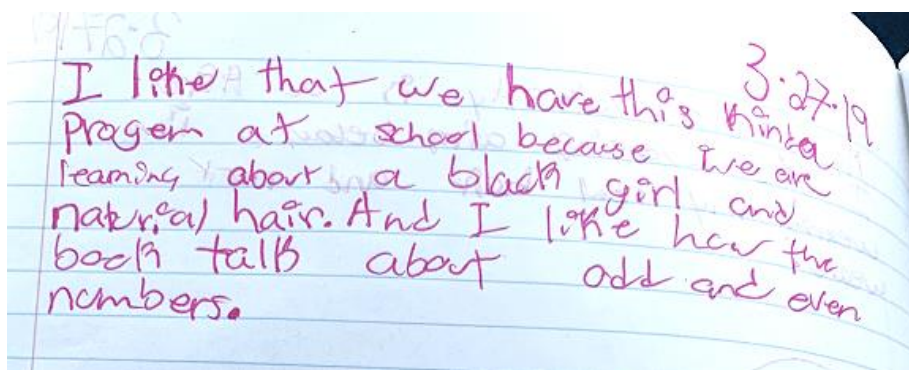 3·27·19
I like that we have this kinda
Progem at school because we are
learning about a black girl and
natural hair. And I like how the
book talk about odd and even
numbers.